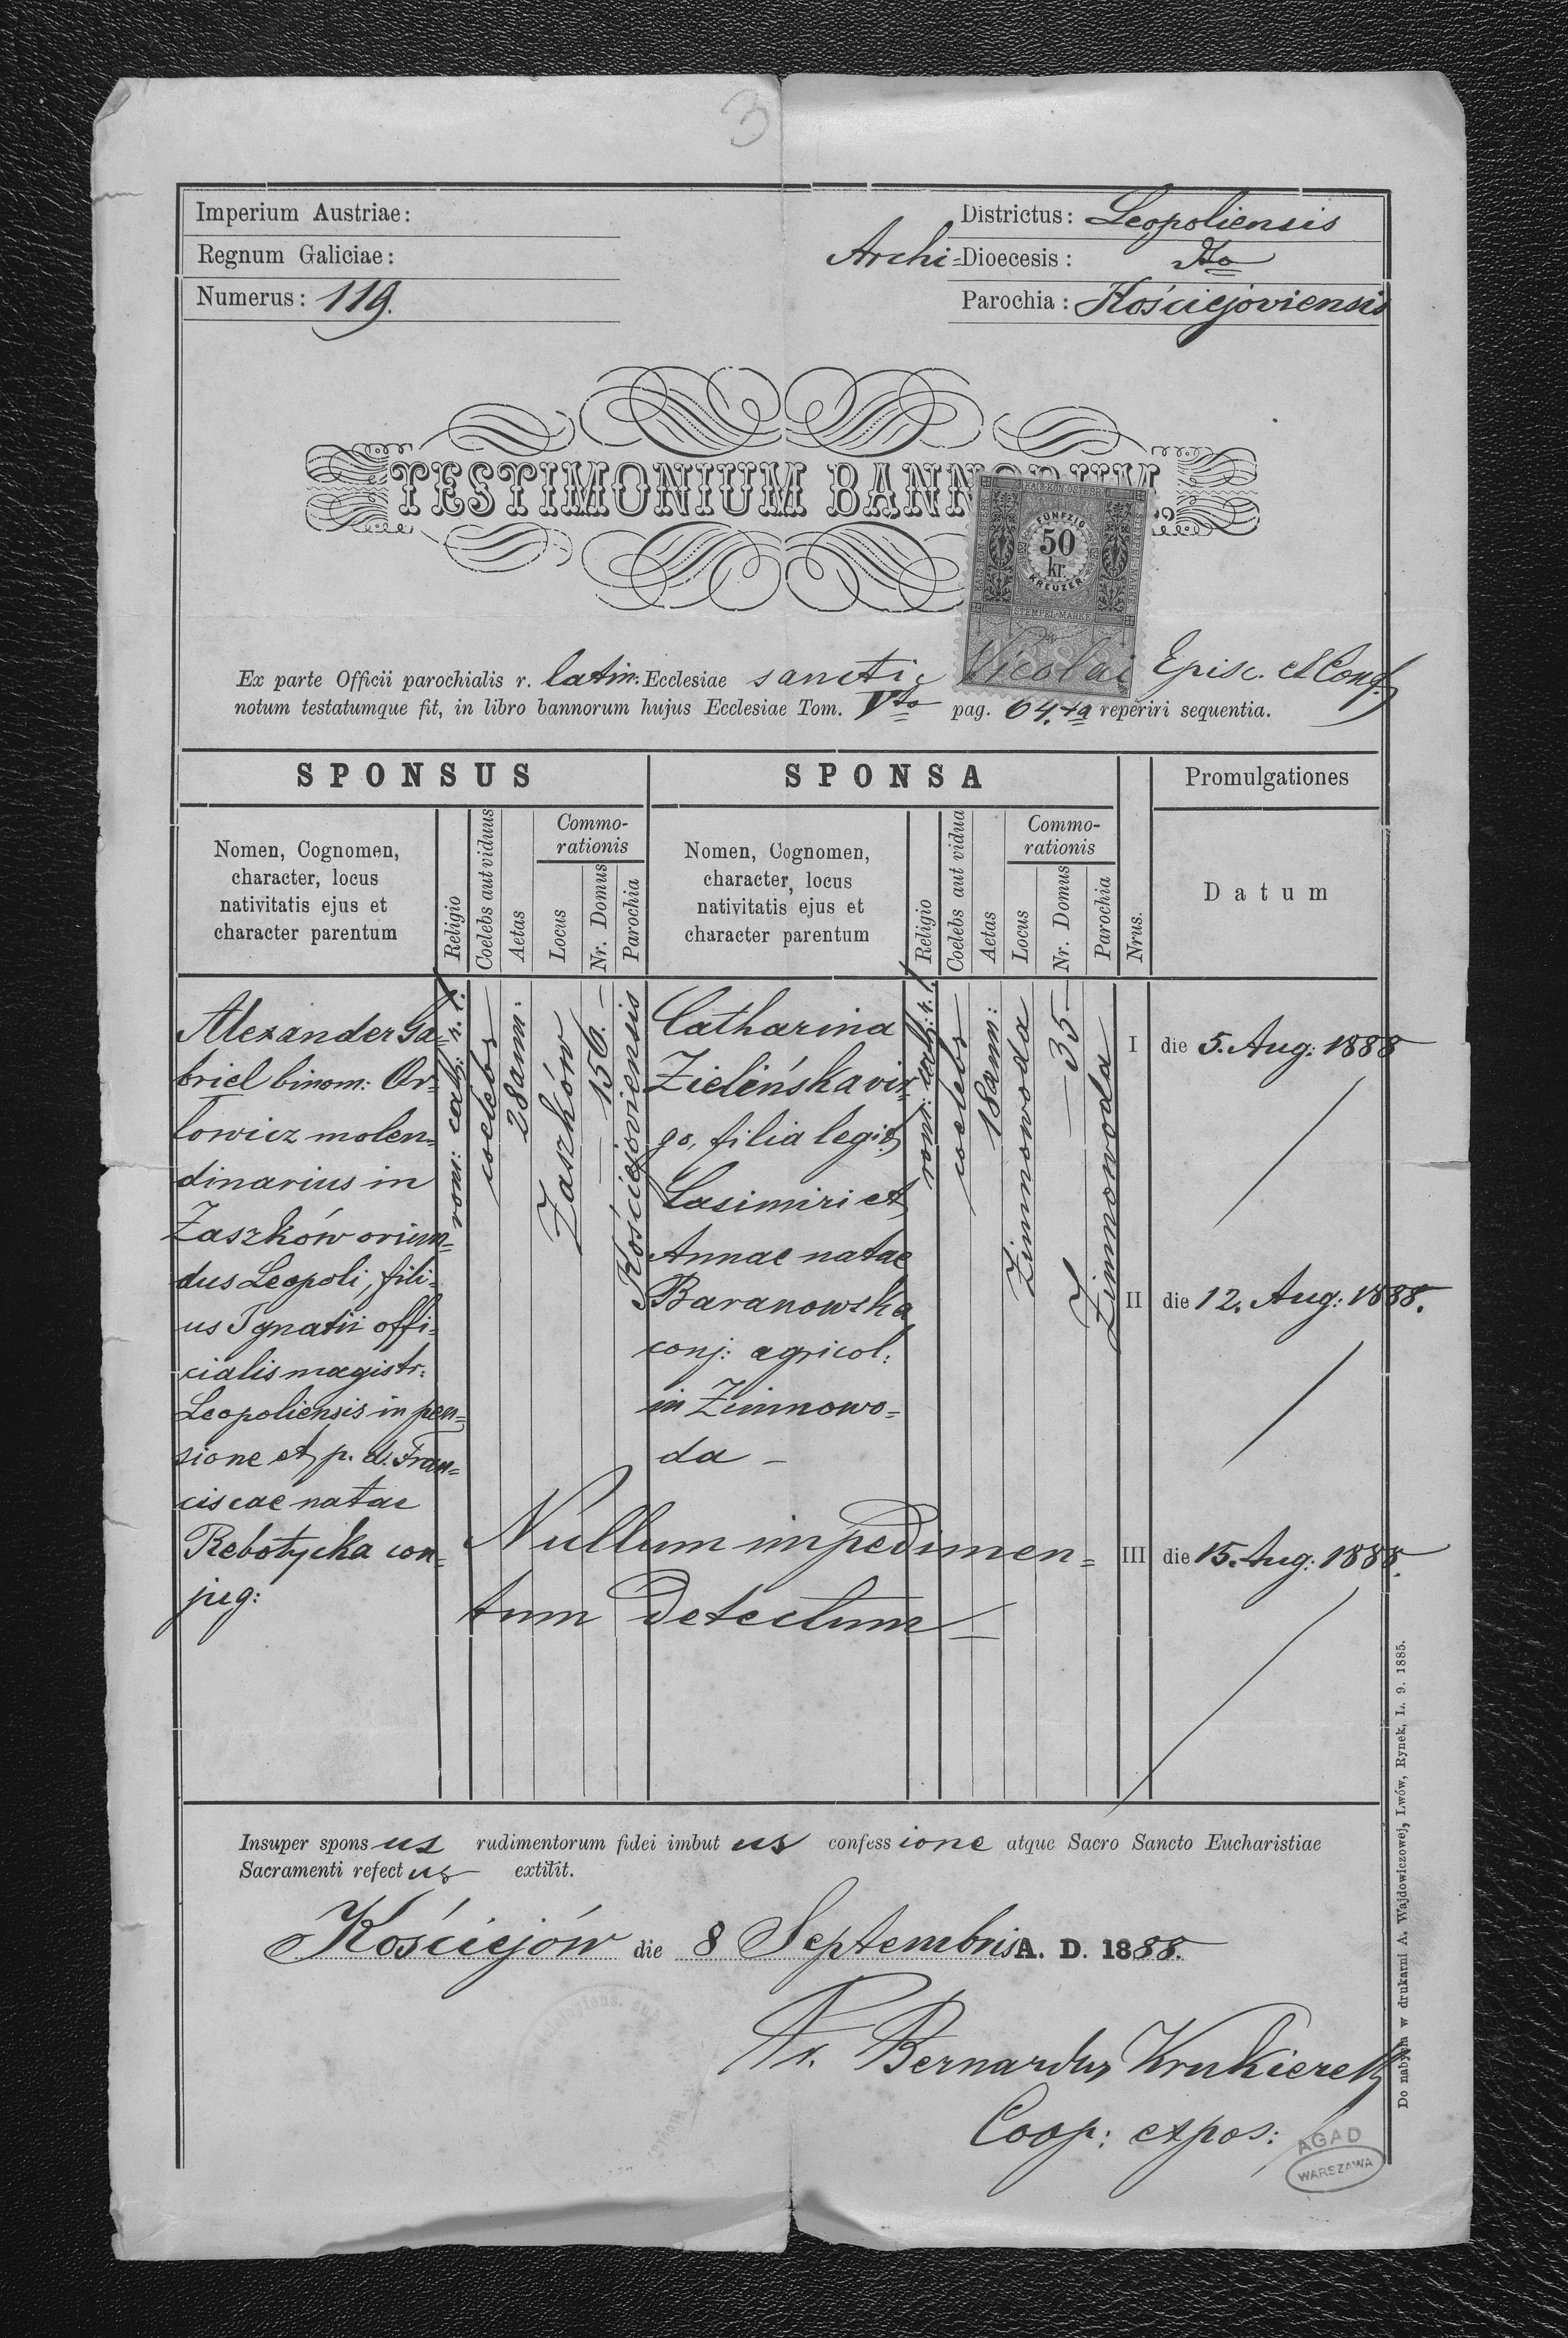 3
Imperium Austriae:
Regnum Galiciae:
Numerus: 119.
Districtus: Leopoliensis
Archi-Dioecesis: dto
Parochia: Kościejoviensis
TESTIMONIUM BANNORUM.
KAIS. KÖN. ÖSTERR.
FÜNFZIG
50
kr.
KREUZER
STEMPEL-MARKE
Ex parte Officii parochialis r. latin: Ecclesiae sancti Nicolai Episc. et Conf.
notum testatumque fit, in libro bannorum hujus Ecclesiae Tom. Vto pag. 64.ta reperiri sequentia.
SPONSUS
Nomen, Cognomen,
character, locus
nativitatis ejus et
character parentum
Religio
Coelebs aut viduus
Aetas
Commo-
rationis
Locus
Nr. Domus
Parochia
SPONSA
Nomen, Cognomen,
character, locus
nativitatis ejus et
character parentum
Religio
Coelebs aut vidua
Aetas
Commo-
rationis
Locus
Nr. Domus
Parochia
Nrus.
Promulgationes
Datum
Alexander Ga=
briel binom: Or=
łowicz molen=
dinarius in
Zaszków oriun=
dus Leopoli, fili=
us Ignatii offi=
cialis magistr:
Leopoliensis in pen=
sione et p. d. Fran=
ciscae natae
Rebotycka con=
jug:
rom: cath: r. l.
coelebs
28 ann:
Zaszków
156.
Kościejoviensis
Catharina
Zielińska vir=
go, filia legit:
Casimiri et
Annae natae
Baranowska
conj: agricol:
in Zimnowo=
da –
rom: cath: r. l.
coelebs
18 ann:
Zimnowoda
35
Zimnowoda
I die 5. Aug: 1888
II die 12. Aug: 1888.
III die 15. Aug: 1888.
Nullum impedimen=
tum detectum
Insuper sponsus rudimentorum fidei imbutus confessione atque Sacro Sancto Eucharistiae
Sacramenti refectus extitit.
Kościejów die 8 Septembris A. D. 1888.
Bernardus Krukierek
Coop: expos:
AGAD
WARSZAWA
Do nabycia w drukarni A. Wajdowiczowej, Lwów, Rynek, L. 9. 1885.